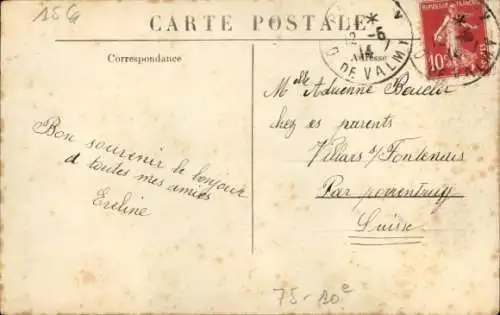 15 G
CARTE POSTALE
Correspondance
Adresse
12 -6
14
DE VALMY
10c
Bon souvenir le bonjour
à toutes mes amies
Eveline
Mlle Adrienne
chez ses parents
Villars s/ Fontenais
Par porrentruy
Suisse
75-10e